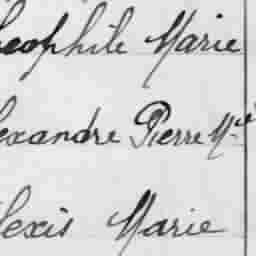 eophile Marie
lexandre Pierre M.ie
lexis Marie